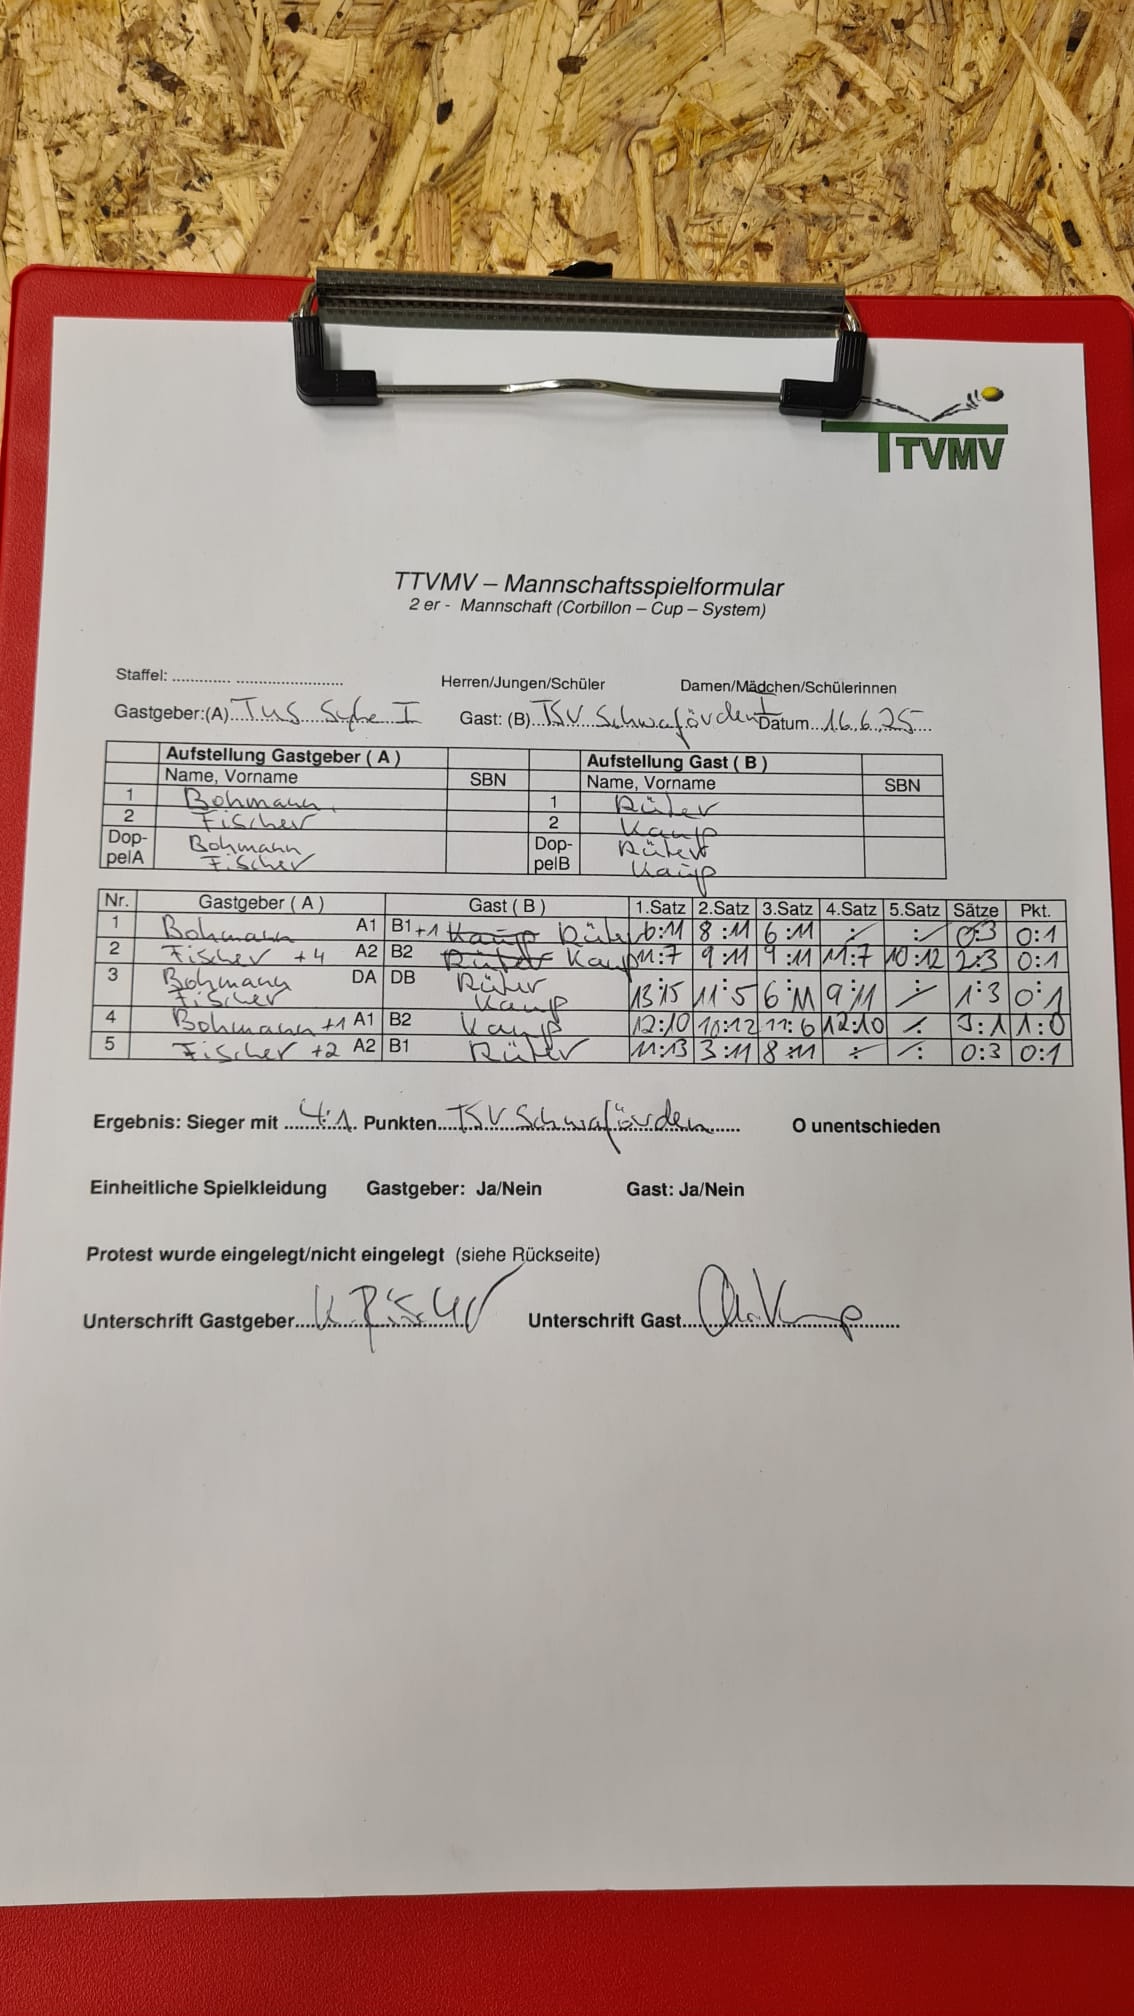 TTVMV
TTVMV – Mannschaftsspielformular
2 er - Mannschaft (Corbillon – Cup – System)
Staffel: ............. ........................ Herren/Jungen/Schüler Damen/Mädchen/Schülerinnen
Gastgeber:(A) TuS Syke I Gast: (B) TSV Schwaförden I Datum 16.6.25
Aufstellung Gastgeber ( A ) Aufstellung Gast ( B )
Name, Vorname SBN Name, Vorname SBN
1 Bohmann 1 Rüter
2 Fischer 2 Kamp
Dop-pelA Bohmann Dop-pelB Rüter
Fischer Kamp
Nr. Gastgeber ( A ) Gast ( B ) 1.Satz 2.Satz 3.Satz 4.Satz 5.Satz Sätze Pkt.
1 Bohmann A1 B1 +1 Kamp Rüter 6:11 8:11 6:11 : : 0:3 0:1
2 Fischer +4 A2 B2 Rüter Kamp 11:7 9:11 9:11 11:7 10:12 2:3 0:1
3 Bohmann DA DB Rüter 13:15 11:5 6:11 9:11 : 1:3 0:1
Fischer Kamp
4 Bohmann +1 A1 B2 Kamp 12:10 10:12 11:6 12:10 : 3:1 1:0
5 Fischer +2 A2 B1 Rüter 11:13 3:11 8:11 : : 0:3 0:1
Ergebnis: Sieger mit 4:1 Punkten TSV Schwaförden O unentschieden
Einheitliche Spielkleidung Gastgeber: Ja/Nein Gast: Ja/Nein
Protest wurde eingelegt/nicht eingelegt (siehe Rückseite)
Unterschrift Gastgeber K. Fischer Unterschrift Gast